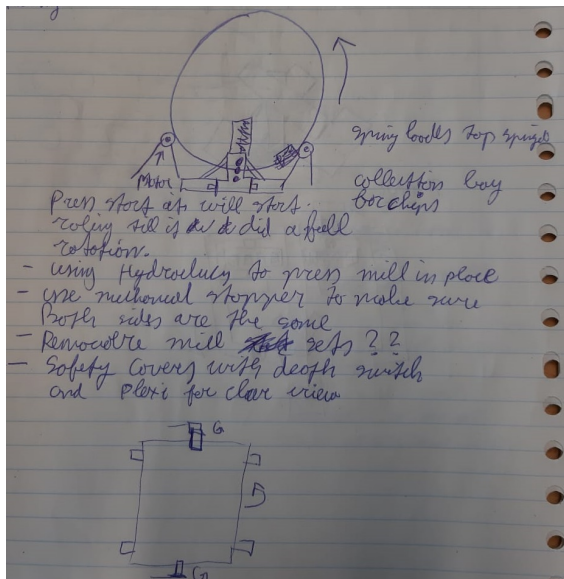 spring loaded top
collection bay
for chips
Motor
Press start it will start
roling till it did a full
rotation.
- using Hydraulics to press mill in place
- use mechanical stopper to make sure
Both sides are the same
- Removable mill sets ??
- Safety Covers with death switch
and plexi for clear view
G
G